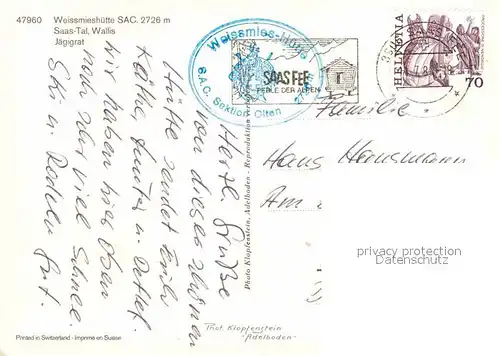 47960 Weissmieshütte SAC. 2726 m
Saas-Tal, Wallis
Jägigrat
Herzl. Grüße
von dieser schönen
Hütte sendet Euch
Käthe, Günter u. Detlef.
Wir haben hier oben
noch sehr viel Schnee.
Ski u. Rodeln gut.
Printed in Switzerland - Imprimé en Suisse
Photo Klopfenstein, Adelboden - Reproduktion
Weissmies-Hütte
S.A.C. Sektion Olten
SAAS FEE
PERLE DER ALPEN
HELVETIA
70
Familie
Hans
Am
privacy protection
Datenschutz
Phot. Klopfenstein
"Adelboden"